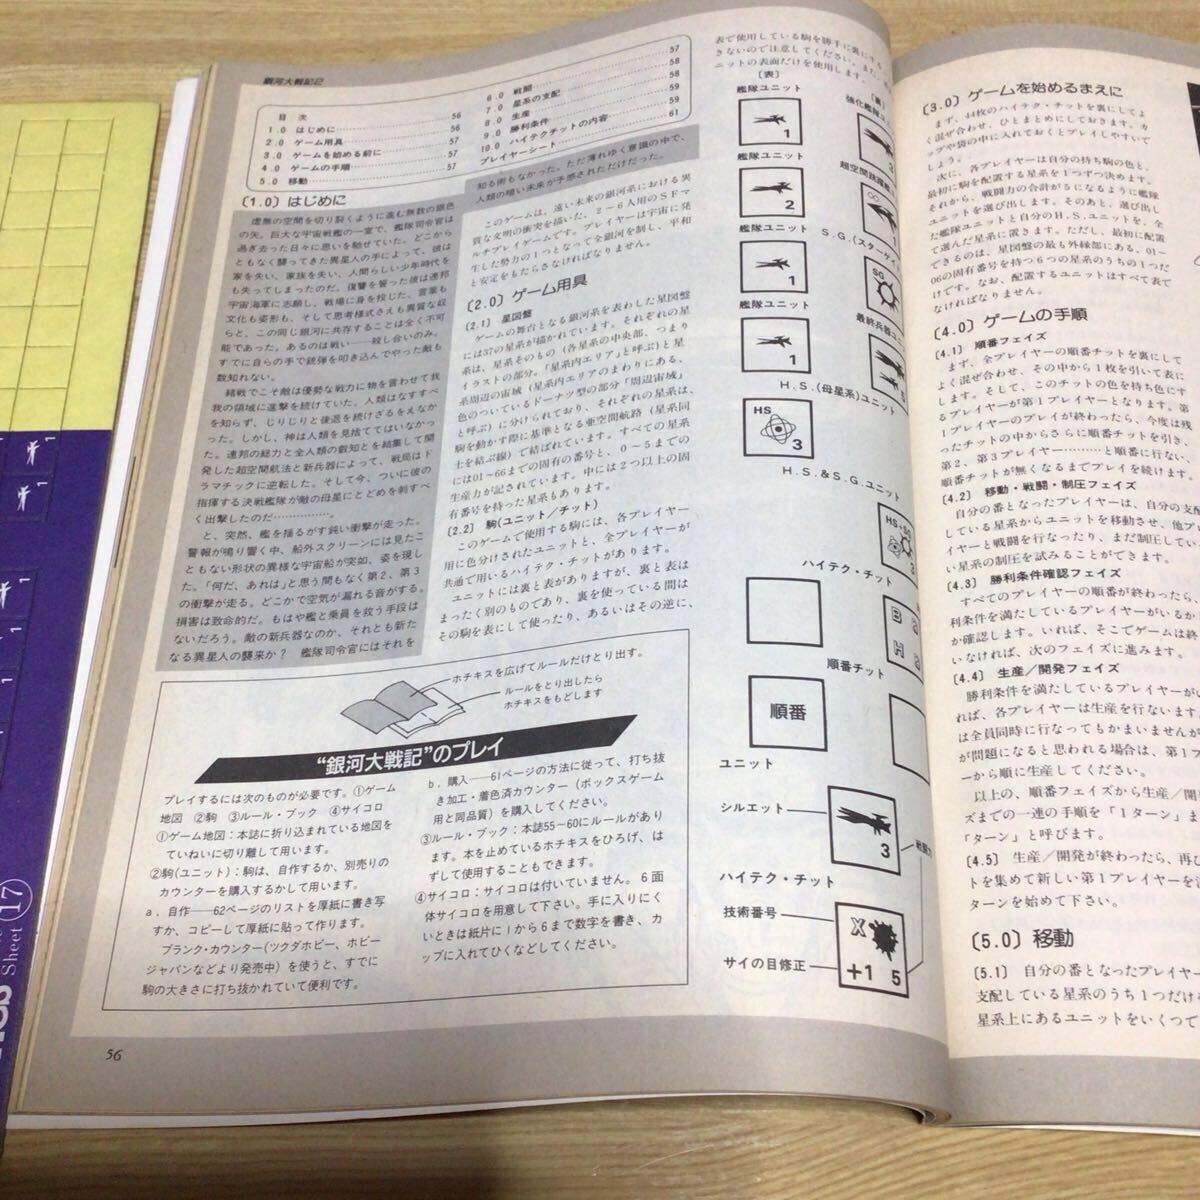 銀河大戦記2
目 次
1.0 はじめに 56
2.0 ゲーム用具 56
3.0 ゲームを始める前に 57
4.0 ゲームの手順 57
5.0 移動 57
6.0 戦闘 57
7.0 星系の支配 58
8.0 生産 58
9.0 勝利条件 59
10.0 ハイテクチットの内容 59
プレイヤーシート 61
〔1.0〕はじめに
虚無の空間を切り裂くように進む無数の銀色
の矢。巨大な宇宙戦艦の一室で、艦隊司令官は
過ぎ去った日々に思いを馳せていた。どこから
ともなく襲ってきた異星人の手によって、彼は
家を失い、家族を失い、人間らしい少年時代を
も失ってしまったのだ。復讐を誓った彼は連邦
宇宙海軍に志願し、戦場に身を投じた。言葉も
文化も姿形も、そして思考様式さえも異質な奴
らと、この同じ銀河に共存することは全く不可
能であった。あるのは戦い──殺し合いのみ。
すでに自らの手で銃弾を叩き込んでやった敵も
数知れない。
緒戦でこそ敵は優勢な戦力に物を言わせて我
我の領域に進撃を続けていた。人類はなすすべ
を知らず、じりじりと後退を続けざるをえなか
った。しかし、神は人類を見捨ててはいなかっ
た。連邦の総力と全人類の叡知とを結集して開
発した超空間航法と新兵器によって、戦局はド
ラマチックに逆転した。そして今、ついに彼の
指揮する決戦艦隊が敵の母星にとどめを刺すべ
く出撃したのだ……………。
と、突然、艦を揺るがす鈍い衝撃が走った。
警報が鳴り響く中、船外スクリーンには見たこ
ともない形状の異様な宇宙船が突如、姿を現し
た。「何だ、あれは」と思う間もなく第2、第3
の衝撃が走る。どこかで空気が漏れる音がする。
損害は致命的だ。もはや艦と乗員を救う手段は
ないだろう。敵の新兵器なのか、それとも新た
なる異星人の襲来か？ 艦隊司令官にはそれを
知る術もなかった。ただ薄れゆく意識の中で、
人類の暗い未来が予感されただけだった。
このゲームは、遠い未来の銀河系における異
質な文明の衝突を描いた、2－6人用のSFマ
ルチプレイゲームです。プレイヤーは宇宙に発
生した勢力の1つとなって全銀河を制し、平和
と安定をもたらさなければなりません。
〔2.0〕ゲーム用具
〔2.1〕 星図盤
ゲームの舞台となる銀河系を表わした星図盤
には37の星系が描かれています。それぞれの星
系は、星系そのもの（各星系の中央部、つまり
イラストの部分。「星系内エリア」と呼ぶ）と星
系周辺の宙域（星系内エリアのまわりにある、
色のついているドーナツ型の部分「周辺宙域」
と呼ぶ）に分けられており、それぞれの星系は、
駒を動かす際に基準となる亜空間航路（星系同
士を結ぶ線）で結ばれています。すべての星系
には01～66までの固有の番号と、0～5までの
生産力が記されています。中には2つ以上の固
有番号を持った星系もあります。
〔2.2〕 駒(ユニット／チット)
このゲームで使用する駒には、各プレイヤー
用に色分けされたユニットと、全プレイヤーが
共通で用いるハイテク・チットがあります。
ユニットには裏と表がありますが、裏と表は
まったく別のものであり、裏を使っている間は
その駒を表にして使ったり、あるいはその逆に、
表で使用している駒を勝手に裏にする
きないので注意してください。また、
ニットの表面だけを使用します。
〔表〕
艦隊ユニット
1
艦隊ユニット
2
艦隊ユニット
1
艦隊ユニット
1
H.S.(母星系)ユニット
HS
3
H.S.&S.G.ユニット
HS+SG
3
ハイテク・チット
順番チット
順番
ユニット
シルエット
3
戦闘力
ハイテク・チット
技術番号
X
サイの目修正
+1 5
〔裏〕
強化艦隊ユ
超空間跳躍艦
∞
1
S.G.(スターゲイト
SG
最終兵器ユ
5
ホチキスを広げてルールだけとり出す。
ルールをとり出したら
ホチキスをもどします
“銀河大戦記”のプレイ
プレイするには次のものが必要です。①ゲーム
地図 ②駒 ③ルール・ブック ④サイコロ
①ゲーム地図：本誌に折り込まれている地図を
ていねいに切り離して用います。
②駒(ユニット)：駒は、自作するか、別売りの
カウンターを購入するかして用います。
a．自作──62ページのリストを厚紙に書き写
すか、コピーして厚紙に貼って作ります。
ブランク・カウンター(ツクダホビー、ホビー
ジャパンなどより発売中）を使うと、すでに
駒の大きさに打ち抜かれていて便利です。
b．購入──61ページの方法に従って、打ち抜
き加工・着色済カウンター（ボックスゲーム
用と同品質）を購入してください。
③ルール・ブック：本誌55～60にルールがあり
ます。本を止めているホチキスをひろげ、は
ずして使用することもできます。
④サイコロ：サイコロは付いていません。6面
体サイコロを用意して下さい。手に入りにく
いときは紙片に1から6まで数字を書き、カ
ップに入れてひくなどしてください。
56
〔3.0〕ゲームを始めるまえに
まず、44枚のハイテク・チットを裏にしてよ
く混ぜ合わせ、ひとまとめにしておきます。カ
ップや袋の中に入れておくとプレイしやすいで
しょう。
次に、各プレイヤーは自分の持ち駒の色と、
最初に駒を配置する星系を1つずつ決めます。
それから、戦闘力の合計が5になるように艦隊
ユニットを選び出します。そのあと、選び出し
た艦隊ユニットと自分のH.S.ユニットを、全
て選んだ星系に置きます。ただし、最初に配置
できるのは、星図盤の最も外縁部にある、01～
06の固有番号を持つ6つの星系のうちの1つだ
けです。なお、配置するユニットはすべて表で
なければなりません。
〔4.0〕ゲームの手順
〔4.1〕 順番フェイズ
まず、全プレイヤーの順番チットを裏にして
よく混ぜ合わせ、その中から1枚を引いて表に
します。そして、このチットの色を持ち色にす
るプレイヤーが第1プレイヤーとなります。第
1プレイヤーのプレイが終わったら、今度は残
ったチットの中からさらに順番チットを引き、
第2、第3プレイヤー………と順番に行ない、
順番チットが無くなるまでプレイを続けます。
〔4.2〕 移動・戦闘・制圧フェイズ
自分の番となったプレイヤーは、自分の支配
している星系からユニットを移動させ、他プ
イヤーと戦闘を行なったり、まだ制圧してい
い星系の制圧を試みることができます。
〔4.3〕 勝利条件確認フェイズ
すべてのプレイヤーの順番が終わったら、
利条件を満たしているプレイヤーがいるか
か確認します。いれば、そこでゲームは終
いなければ、次のフェイズに進みます。
〔4.4〕 生産／開発フェイズ
勝利条件を満たしているプレイヤーが
れば、各プレイヤーは生産を行ないます。
は全員同時に行なってもかまいませんが
が問題になると思われる場合は、第1プ
ーから順に生産してください。
以上の、順番フェイズから生産／開
ズまでの一連の手順を「1ターン」ま
「ターン」と呼びます。
〔4.5〕 生産／開発が終わったら、再び
トを集めて新しい第1プレイヤーを決
ターンを始めて下さい。
〔5.0〕移動
〔5.1〕 自分の番となったプレイヤー
支配している星系のうち1つだけを
星系上にあるユニットをいくつで
1
1
1
1
Sheet 17